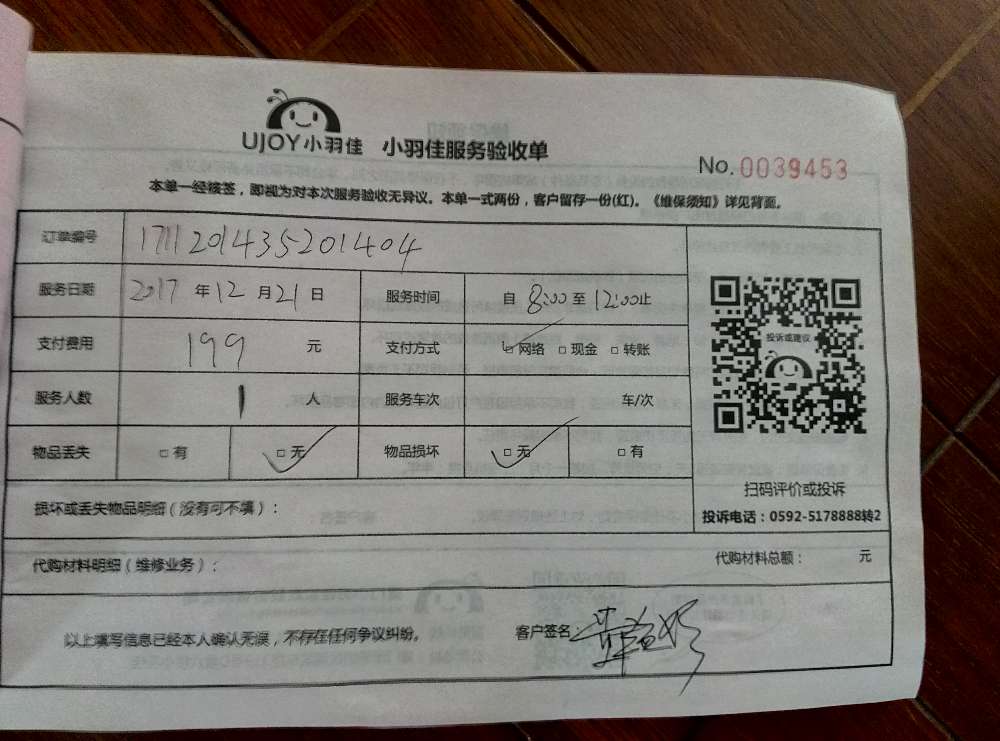 UJOY小羽佳 小羽佳服务验收单
No.0039453
本单一经接签，即视为对本次服务验收无异议。本单一式两份，客户留存一份(红)。《维保须知》详见背面。
订单编号 1711201435201404
服务日期 2017 年 12 月 21 日 服务时间 自 8:00 至 12:00 止
支付费用 199 元 支付方式 □网络 □现金 □转账
投诉或建议
服务人数 1 人 服务车次 车/次
物品丢失 □有 □无 物品损坏 □无 □有
扫码评价或投诉
损坏或丢失物品明细（没有可不填）：
投诉电话：0592-5178888转2
代购材料明细（维修业务）： 代购材料总额： 元
以上填写信息已经本人确认无误，不存在任何争议纠纷。 客户签名：